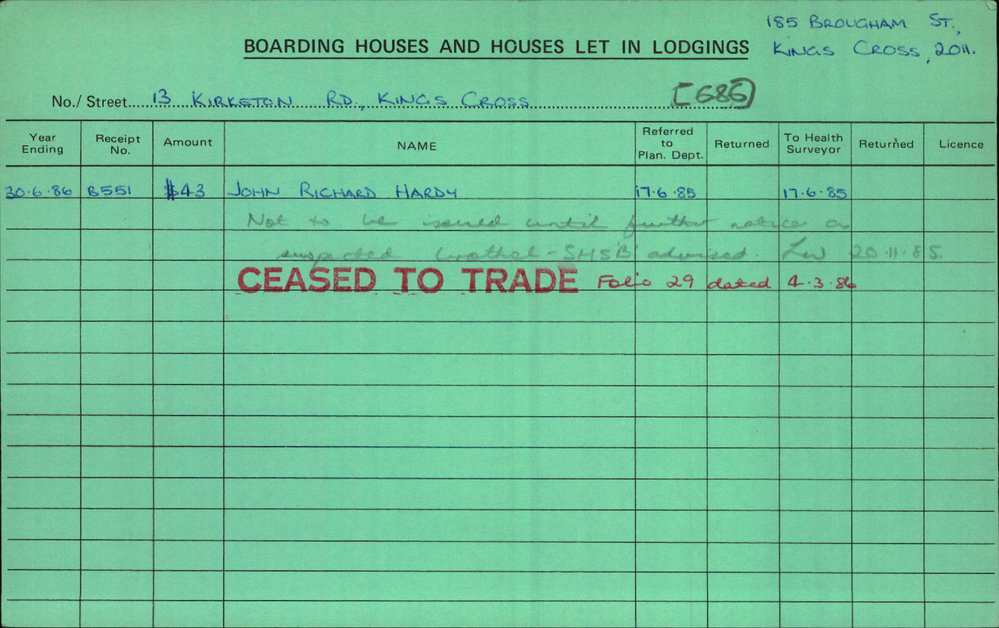 185 BROUGHAM ST,
KINGS CROSS, 2011.
BOARDING HOUSES AND HOUSES LET IN LODGINGS
No./ Street 13 KIRKETON RD, KINGS CROSS [686]
Year Ending Receipt No. Amount NAME Referred to Plan. Dept. Returned To Health Surveyor Returned Licence
30.6.86 B551 $43 JOHN RICHARD HARDY 17.6.85 17.6.85
Not to be issued until further notice a
suspected brothel - SHSB advised. 20.11.85.
CEASED TO TRADE Folio 29 dated 4.3.86